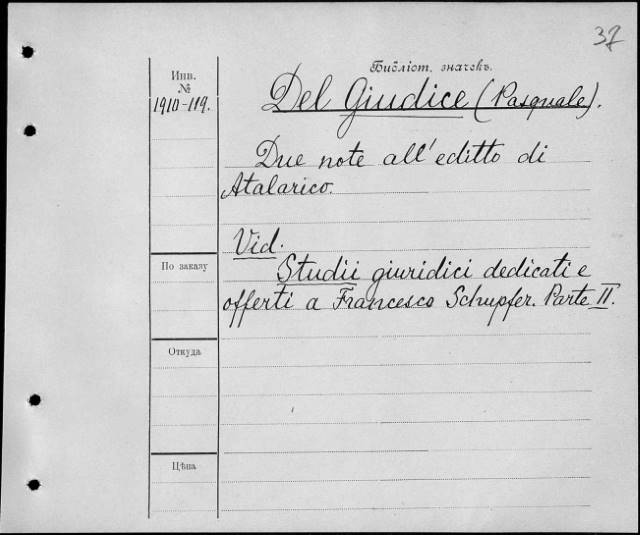 37
Библіот. значекъ.
Инв.
№
1910-119.
Del Giudice (Pasquale).
Due note all'editto di
Atalarico.
Vid.
Studii giuridici dedicati e
offerti a Francesco Schupfer. Parte II.
По заказу
Откуда
Цѣна